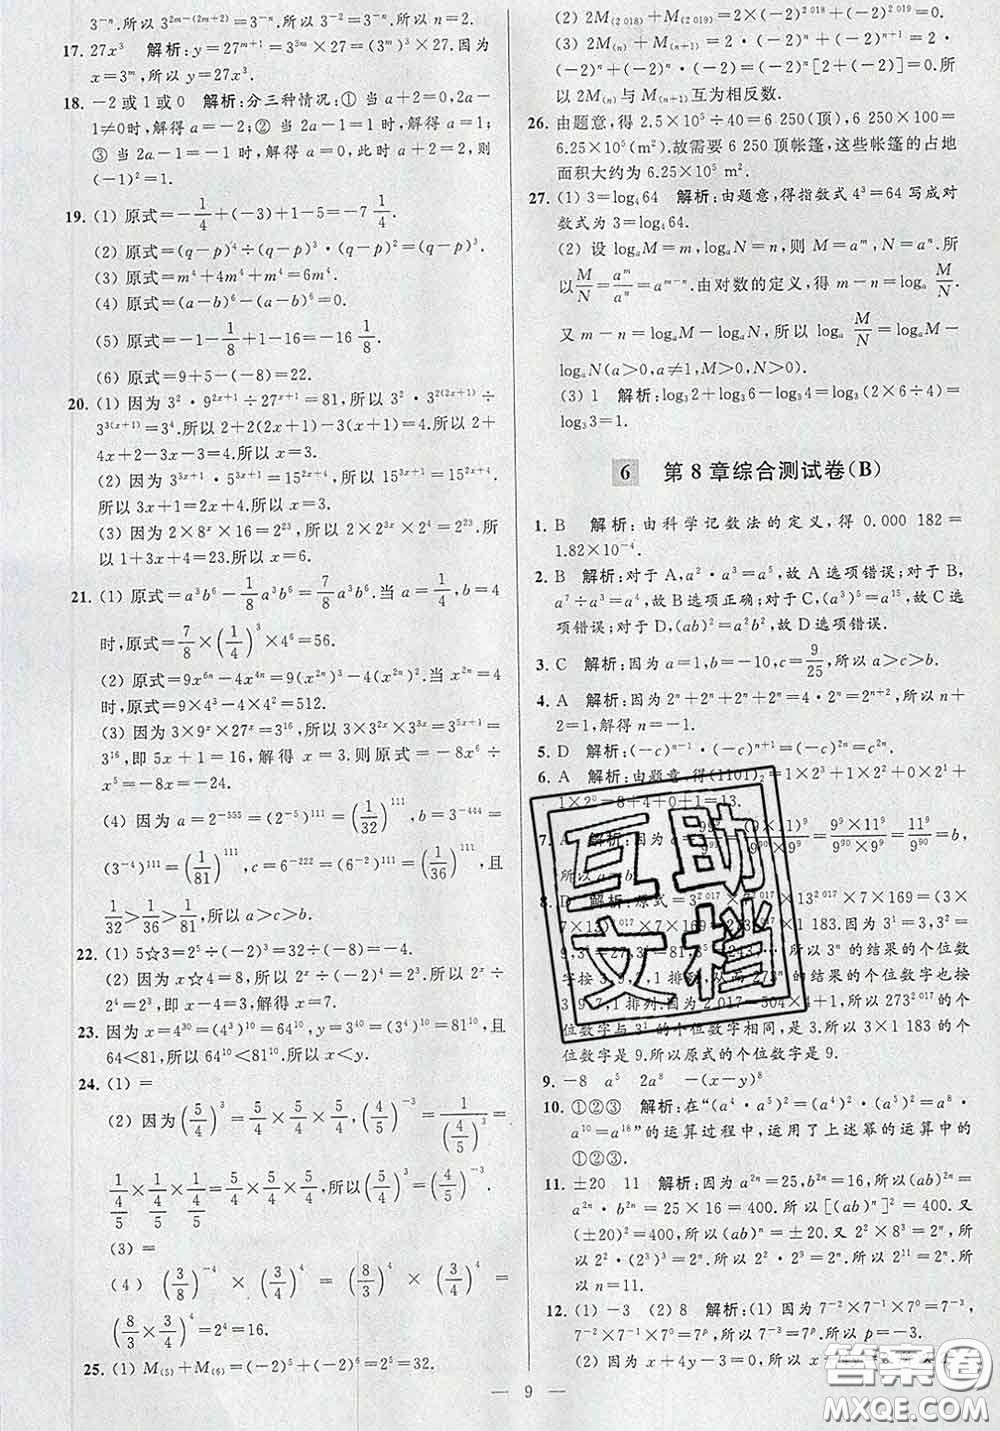 3⁻ⁿ.所以 3^{2m-(2m+2)}=3⁻ⁿ.所以 3⁻²=3⁻ⁿ.所以 n=2.
17. 27x³ 解析:y=27^{m+1}=3^{3m}×27=(3^m)³×27.因为
x=3^m,所以 y=27x³.
18. -2或1或0 解析:分三种情况:① 当 a+2=0,2a-
1≠0时,解得 a=-2;② 当 2a-1=1时,解得 a=1;
③ 当 2a-1=-1 时,解得 a=0,此时 a+2=2,则
(-1)²=1.
19. (1) 原式=-1/4+(-3)+1-5=-7 1/4.
(2) 原式=(q-p)⁴÷(q-p)³·(q-p)²=(q-p)³.
(3) 原式=m⁴+4m⁴+m⁴=6m⁴.
(4) 原式=(a-b)⁶-(a-b)⁶=0.
(5) 原式=-1-1/8+1-16=-16 1/8.
(6) 原式=9+5-(-8)=22.
20. (1) 因为 3²·9^{2x+1}÷27^{x+1}=81,所以 3²·3^{2(2x+1)}÷
3^{3(x+1)}=3⁴.所以 2+2(2x+1)-3(x+1)=4.所以 2+
4x+2-3x-3=4.所以 x=3.
(2) 因为 3^{x+1}·5^{x+1}=15^{2x+4},所以 15^{x+1}=15^{2x+4}.
所以 x+1=2x+4.所以 x=-3.
(3) 因为 2×8^x×16=2²³,所以 2×2^{3x}×2⁴=2²³.所
以 1+3x+4=23.所以 x=6.
21. (1) 原式=a³b⁶-1/8a³b⁶=7/8a³b⁶.当 a=1/4,b=4
时,原式=7/8×(1/4)³×4⁶=56.
(2) 原式=9x^{6n}-4x^{4n}=9(x^{2n})³-4(x^{2n})².当 x^{2n}=4
时,原式=9×4³-4×4²=512.
(3) 因为 3×9^x×27^x=3¹⁶,所以 3×3^{2x}×3^{3x}=3^{5x+1}=
3¹⁶,即 5x+1=16,解得 x=3.则原式=-8x⁶÷
x⁵=-8x=-24.
(4) 因为 a=2⁻⁵⁵⁵=(2⁻⁵)¹¹¹=(1/32)¹¹¹,b=3⁻⁴⁴⁴=
(3⁻⁴)¹¹¹=(1/81)¹¹¹,c=6⁻²²²=(6⁻²)¹¹¹=(1/36)¹¹¹,且
1/32>1/36>1/81,所以 a>c>b.
22. (1) 5☆3=2⁵÷(-2)³=32÷(-8)=-4.
(2) 因为 x☆4=8,所以 2^x÷(-2)⁴=8.所以 2^x÷
2⁴=2³,即 x-4=3,解得 x=7.
23. 因为 x=4³⁰=(4³)¹⁰=64¹⁰,y=3⁴⁰=(3⁴)¹⁰=81¹⁰,且
64<81,所以 64¹⁰<81¹⁰.所以 x<y.
24. (1) =
(2) 因为(5/4)³=5/4×5/4×5/4,(4/5)⁻³=1/(4/5)³=
1/(4/5)×1/(4/5)×1/(4/5)=5/4×5/4×5/4,所以(5/4)³=(4/5)⁻³.
(3) =
(4) (3/8)⁻⁴×(3/4)⁴=(8/3)⁴×(3/4)⁴=
(8/3×3/4)⁴=2⁴=16.
25. (1) M₍₅₎+M₍₆₎=(-2)⁵+(-2)⁶=2⁵=32.
(2) 2M₍₂ ₀₁₈₎+M₍₂ ₀₁₉₎=2×(-2)^{2 018}+(-2)^{2 019}=0.
(3) 2M₍ₙ₎+M₍ₙ₊₁₎=2·(-2)ⁿ+(-2)ⁿ⁺¹=2·
(-2)ⁿ+(-2)ⁿ·(-2)=(-2)ⁿ[2+(-2)]=0.所
以 2M₍ₙ₎与 M₍ₙ₊₁₎互为相反数.
26. 由题意,得 2.5×10⁵÷40=6 250(顶),6 250×100=
6.25×10⁵(m²).故需要 6 250 顶帐篷,这些帐篷的占地
面积大约为 6.25×10⁵ m².
27. (1) 3=log₄64 解析:由题意,得指数式 4³=64 写成对
数式为 3=log₄64.
(2) 设 logₐM=m,logₐN=n,则 M=aᵐ,N=aⁿ.所
以M/N=aᵐ/aⁿ=aᵐ⁻ⁿ.由对数的定义,得 m-n=logₐM/N.
又 m-n=logₐM-logₐN,所以 logₐM/N=logₐM-
logₐN(a>0,a≠1,M>0,N>0).
(3) 1 解析:log₃2+log₃6-log₃4=log₃(2×6÷4)=
log₃3=1.
6 第 8 章综合测试卷(B)
1. B 解析:由科学记数法的定义,得 0.000 182=
1.82×10⁻⁴.
2. B 解析:对于 A,a²·a³=a⁵,故 A 选项错误;对于 B,
a⁷÷a³=a⁴,故 B 选项正确;对于 C,(a³)⁵=a¹⁵,故 C 选
项错误;对于 D,(ab)²=a²b²,故 D 选项错误.
3. C 解析:因为 a=1,b=-10,c=9/25,所以 a>c>b.
4. A 解析:因为 2ⁿ+2ⁿ+2ⁿ+2ⁿ=4·2ⁿ=2ⁿ⁺²,所以 n+
2=1,解得 n=-1.
5. D 解析:(-c)ⁿ⁻¹·(-c)ⁿ⁺¹=(-c)²ⁿ=c²ⁿ.
6. A 解析:由题意,得(1101)₂=1×2³+1×2²+0×2¹+
1×2⁰=8+4+0+1=13.
7. A 解析:因为 a=99⁹/9⁹⁹=(9×11)⁹/(9⁹⁰×9⁹)=(9⁹×11⁹)/(9⁹⁰×9⁹)=11⁹/9⁹⁰=b,
所以 a=b.
8. D 解析:原式=3^{2 017}×7^{2 017}×7×169=(3×
7×13)^{2 017}×7×169=273^{2 017}×1 183.因为 3¹=3,3²=
9,3³=27,3⁴=81,3⁵=243,…,所以 3ⁿ 的结果的个位数
字按 3,9,7,1 排列.从而 273ⁿ 的结果的个位数字也按
3,9,7,1 排列.因为 2 017=504×4+1,所以 273^{2 017}的个
位数字与 3¹ 的个位数字相同,是 3.所以 3×1 183 的个
位数字是 9.所以原式的个位数字是 9.
9. -8 a⁵ 2a⁸ -(x-y)⁸
10. ①②③ 解析:在“(a⁴·a⁵)²=(a⁴)²·(a⁵)²=a⁸·
a¹⁰=a¹⁸”的运算过程中,运用了上述幂的运算中的
①②③.
11. ±20 11 解析:因为 a²ⁿ=25,b²ⁿ=16,所以 (ab)²ⁿ=
a²ⁿ·b²ⁿ=25×16=400.所以[(ab)ⁿ]²=400.又
(±20)²=400,所以(ab)ⁿ=±20.又 2²×8³=2ⁿ,所
以 2²·(2³)³=2ⁿ.所以 2²·2⁹=2ⁿ.所以 2¹¹=2ⁿ.所
以 n=11.
12. (1) -3 (2) 8 解析:(1) 因为 7⁻²×7⁻¹×7⁰=7⁻³,
7⁻²×7⁻¹×7⁰=7ᵖ,所以 7⁻³=7ᵖ.所以 p=-3.
(2) 因为 x+4y-3=0,所以
— 9 —
互助
文档
答案圈
MXQE.COM